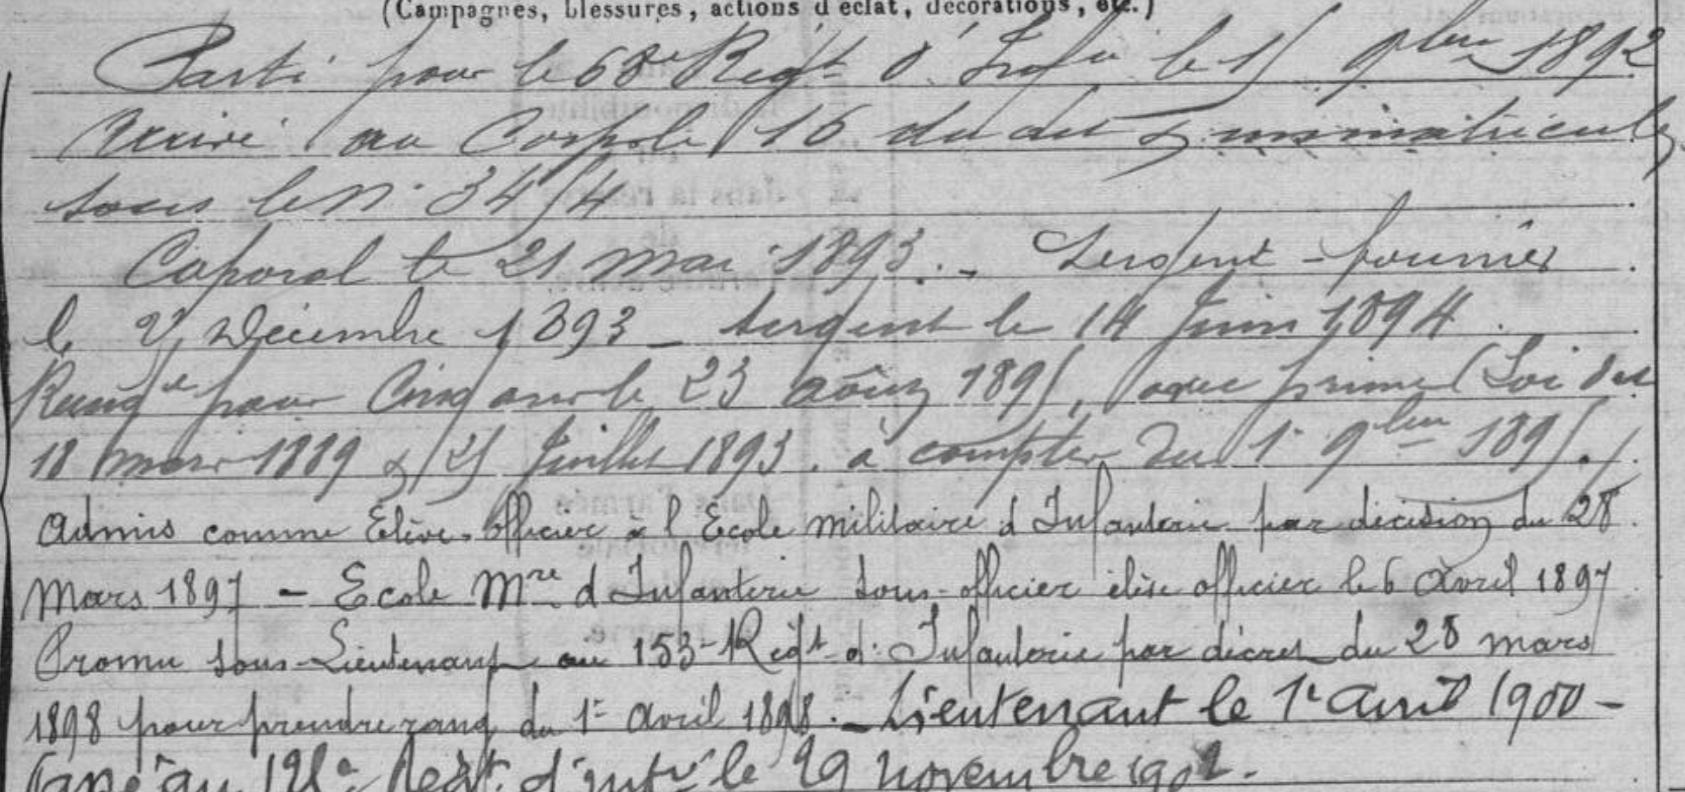 (Campagnes, blessures, actions d'éclat, décorations, etc.)
Parti pour le 68e Régt d'Infie le 15 9bre 1892
Arrivé au Corps le 16 du dit & immatriculé
sous le N° 3454
Caporal le 21 mai 1893. - Sergent-fourrier
le 2 Décembre 1893 - Sergent le 14 Juin 1894.
Rengé pour Cinq ans le 23 août 1895, avec prime (Loi des
18 mars 1889 & 25 Juillet 1893. à compter du 1er 9bre 1895./
Admis comme Elève-officier à l'Ecole militaire d'Infanterie par décision du 28
Mars 1897 - Ecole Mre d'Infanterie Sous-officier élève officier le 6 Avril 1897
Promu sous-Lieutenant au 153e Régt d'Infanterie par décret du 28 mars
1898 pour prendre rang du 1er Avril 1898. - Lieutenant le 1er Avril 1900 -
Passé au Régt. d'Infie le 29 novembre